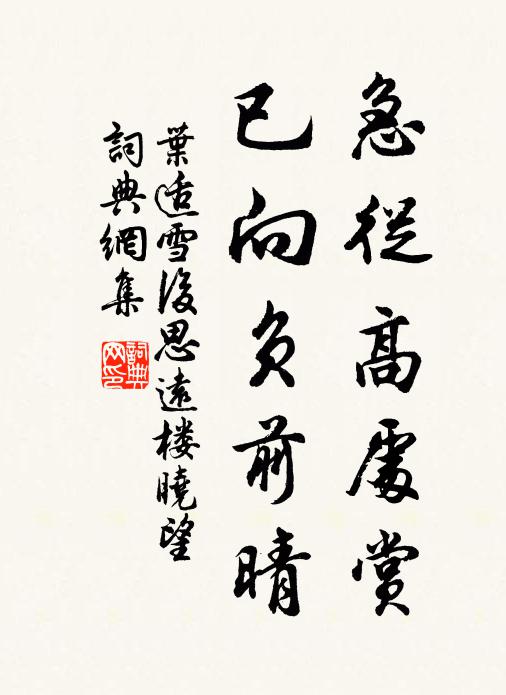 急從高處賞
已向負前晴
葉適雪後思遠樓曉望
詞典網集
詞典網印